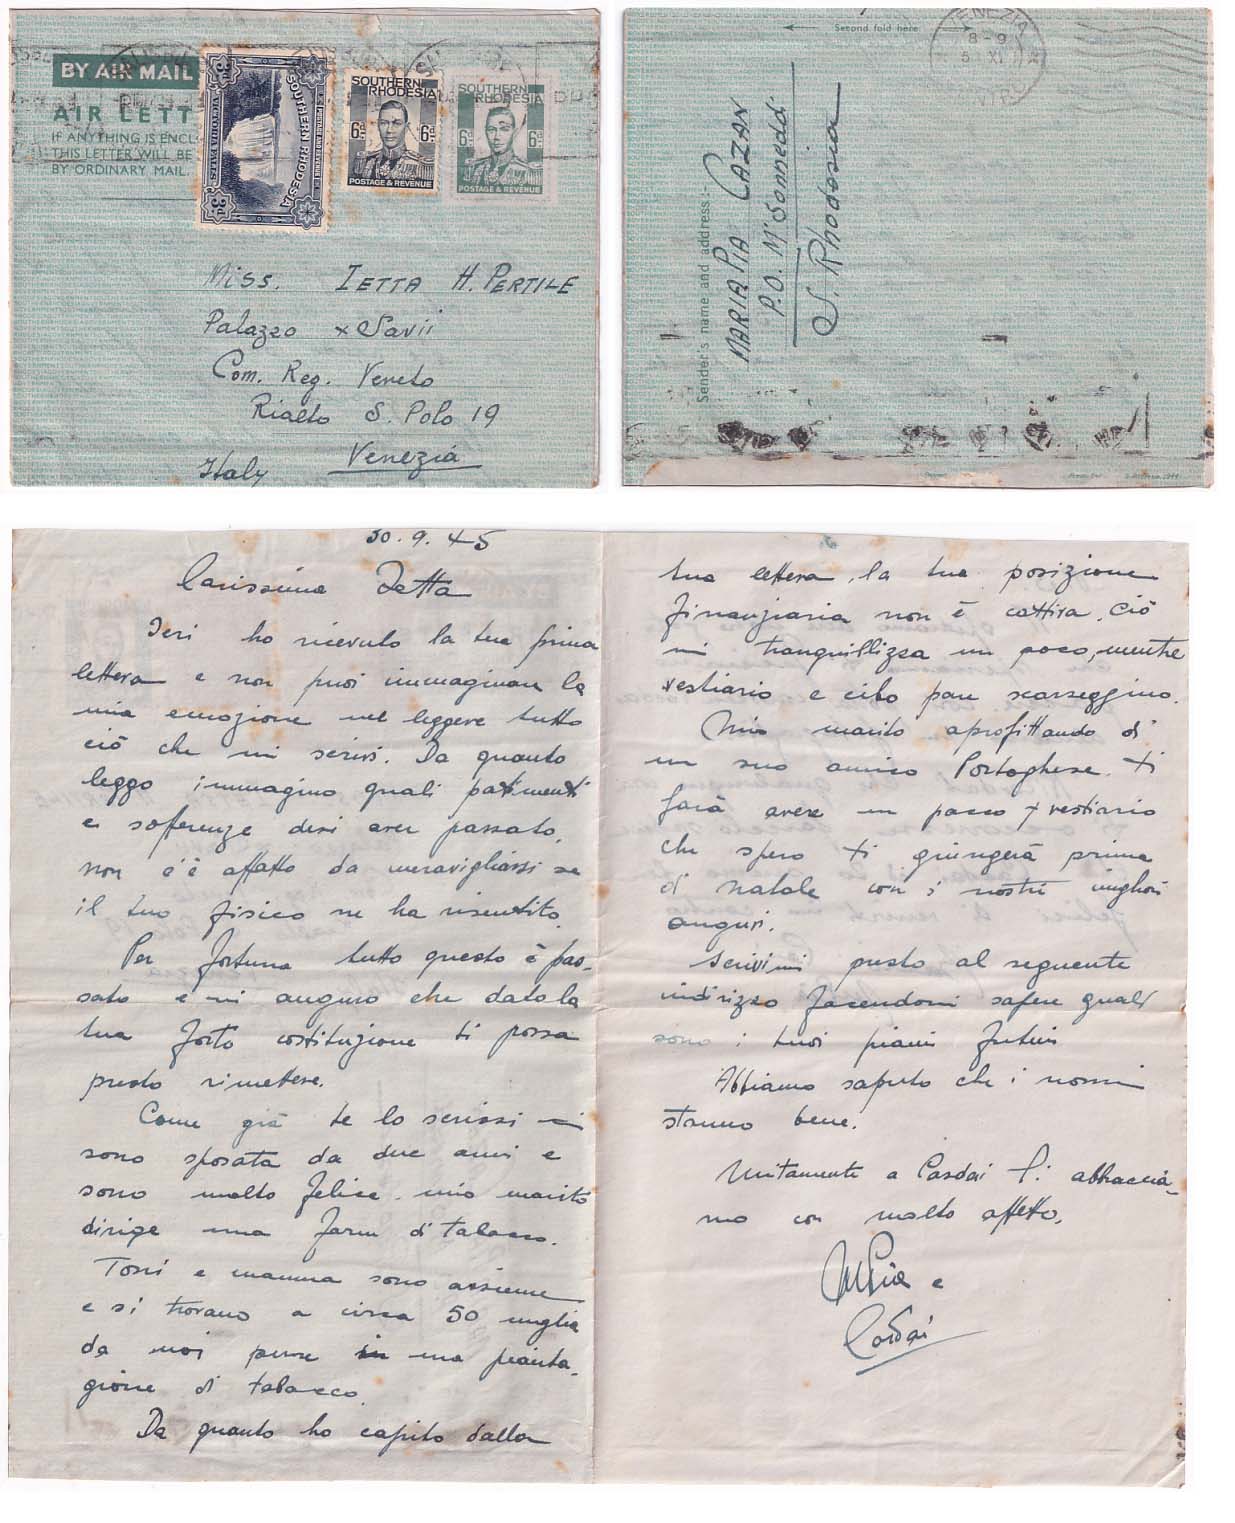 BY AIR MAIL
AIR LETT
IF ANYTHING IS ENCL
THIS LETTER WILL BE
BY ORDINARY MAIL.
SOUTHERN RHODESIA
POSTAGE AND REVENUE
VICTORIA FALLS
3d
3d
SOUTHERN
RHODESIA
6d
6d
POSTAGE & REVENUE
SOUTHERN
RHODESIA
6d
6d
POSTAGE & REVENUE
Miss. IETTA H. PERTILE
Palazzo x Savii
Com. Reg. Veneto
Rialto S. Polo 19
Venezia
Italy
Second fold here
VENEZIA
8-9
5 XI
Sender's name and address:-
MARIA PIA CAZAN
P.O. M'Sonneddi
S. Rhodesia
30.9.45
Carissima Ietta
Ieri ho ricevuto la tua prima
lettera e non puoi immaginare la
mia emozione nel leggere tutto
ciò che mi scrivi. Da quanto
leggo immagino quali patimenti
e sofferenze devi aver passato,
non c'è affatto da meravigliarsi se
il tuo fisico ne ha risentito.
Per fortuna tutto questo è pas-
sato e mi auguro che data la
tua forte costituzione ti possa
presto rimettere.
Come già te lo scrissi mi
sono sposata da due anni e
sono molto felice. mio marito
dirige una farm di tabacco.
Toni e mamma sono assieme
e si trovano a circa 50 miglia
da noi pure in una pianta-
gione di tabacco.
Da quanto ho capito dalla
tua lettera, la tua posizione
finanziaria non è cattiva. Ciò
mi tranquillizza un poco, mentre
vestiario e cibo pare scarseggino.
Mio marito aprofittando di
un suo amico Portoghese. ti
farà avere un pacco x vestiario
che spero ti giungerà prima
di natale con i nostri migliori
auguri.
Scrivimi presto al seguente
indirizzo facendomi sapere quali
sono i tuoi piani futuri
Abbiamo saputo che i nonni
stanno bene.
Unitamente a Casdai ti abbraccia-
mo con molto affetto.
MPia e
Casdai